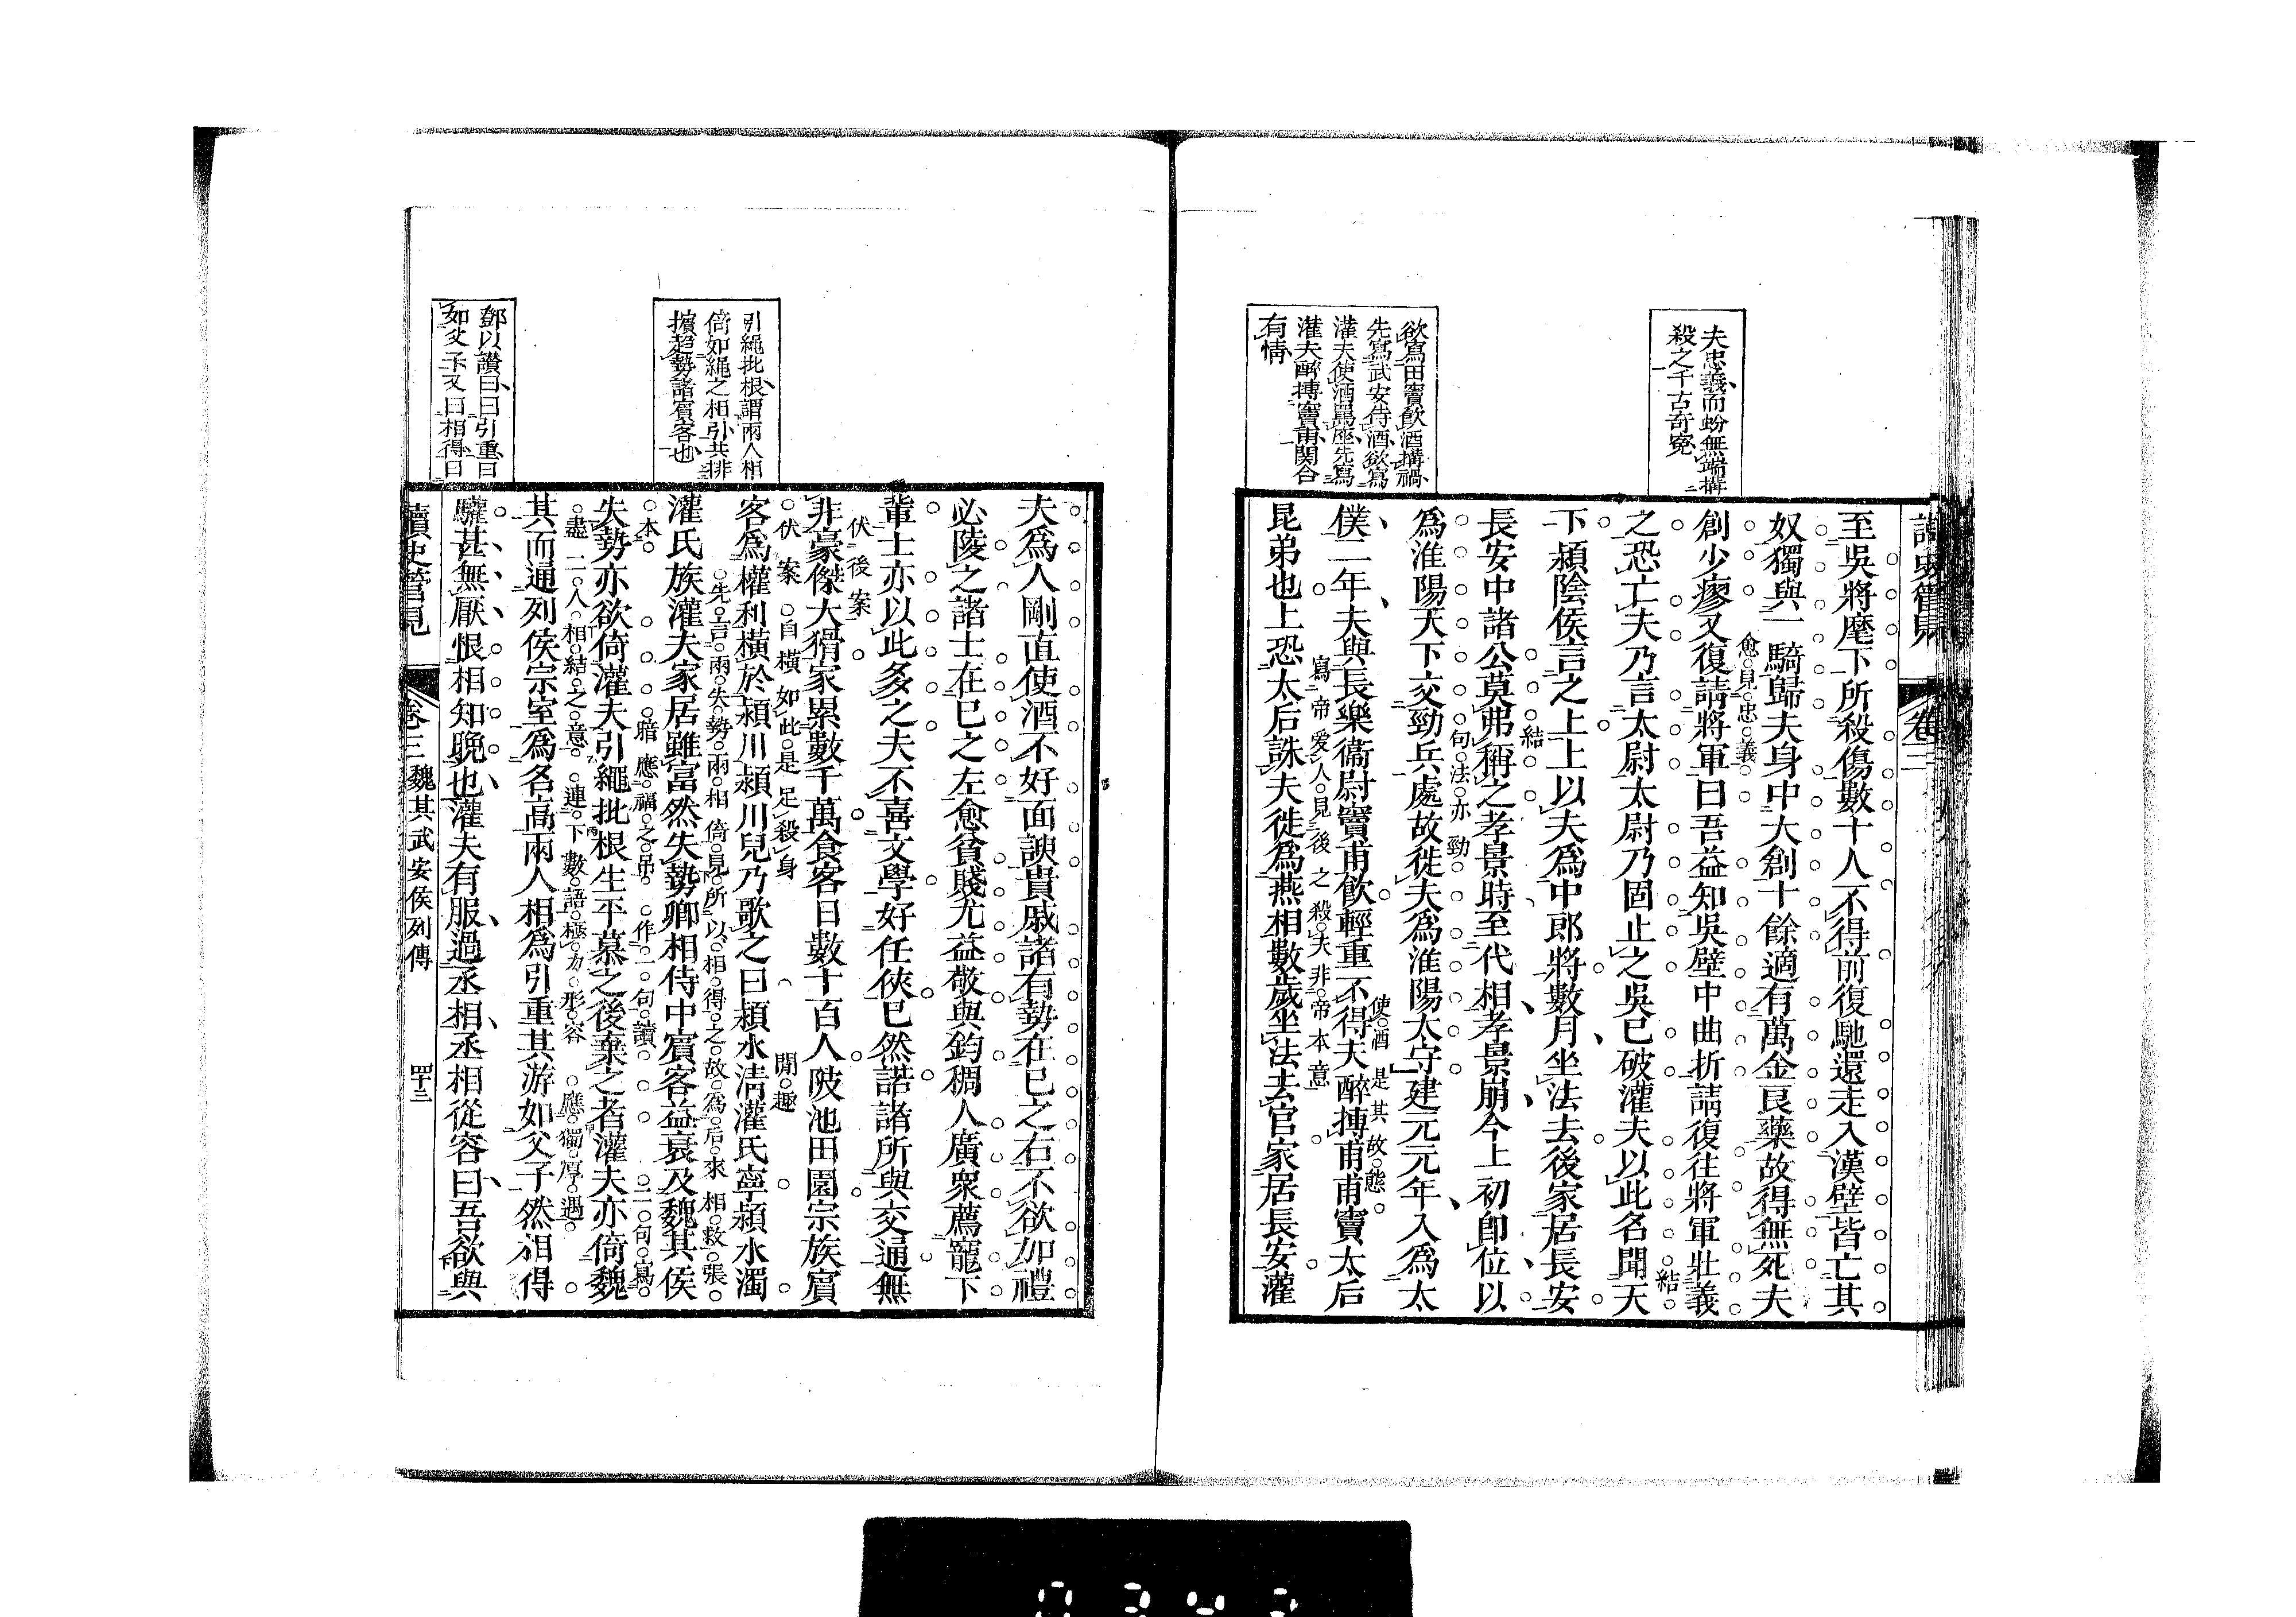 夫忠義而蚡無端搆
殺之千古奇寃
欲寫田竇飲酒搆禍
先寫武安侍酒欲寫
灌夫使酒罵座先寫
灌夫醉搏竇甫関合
有情
至吳將麾下所殺傷數十人不得前復馳還走入漢壁皆亡其
奴獨與一騎歸夫身中大創十餘適有萬金良藥故得無死夫
愈見忠義
創少瘳又復請將軍曰吾益知吳壁中曲折請復往將軍壯義
之恐亡夫乃言太尉太尉乃固止之吳已破灌夫以此名聞天
結
下潁陰侯言之上上以夫爲中郎將數月坐法去後家居長安
結
長安中諸公莫弗稱之孝景時至代相孝景崩今上初卽位以
句法亦勁
爲淮陽天下交勁兵處故徙夫爲淮陽太守建元元年入爲太
使酒是其故態
僕二年夫與長樂衞尉竇甫飲輕重不得夫醉搏甫甫竇太后
寫帝愛人見後之殺夫非帝本意
昆弟也上恐太后誅夫徙爲燕相數歲坐法去官家居長安灌
引繩批根謂兩人相
倚如繩之相引共排
擯趨勢諸賓客也
鄧以讚曰曰引重曰
如父子又曰相得曰
夫爲人剛直使酒不好面諛貴戚諸有勢在已之右不欲加禮
必陵之諸士在已之左愈貧賤尤益敬與鈞稠人廣衆薦寵下
輩士亦以此多之夫不喜文學好任俠已然諾諸所與交通無
伏後案
非豪傑大猾家累數千萬食客日數十百人陂池田園宗族賓
伏案 自橫如此是足殺身 閒趣
客爲權利橫於潁川潁川兒乃歌之曰潁水淸灌氏寧潁水濁
先言兩失勢兩相倚見所以相得之故爲后來相救張
灌氏族灌夫家居雖富然失勢卿相侍中賓客益衰及魏其侯
本 暗應福之弔 作一句讀 二句寫
失勢亦欲倚灌夫引繩批根生平慕之後棄之者灌夫亦倚魏
盡二人相結之意 連下數語極力形容 應獨厚遇
其而通列侯宗室爲名高兩人相爲引重其游如父子然相得
驩甚無厭恨相知晚也灌夫有服過丞相丞相從容曰吾欲與
讀史管見 卷三 魏其武安侯列傳 四十三